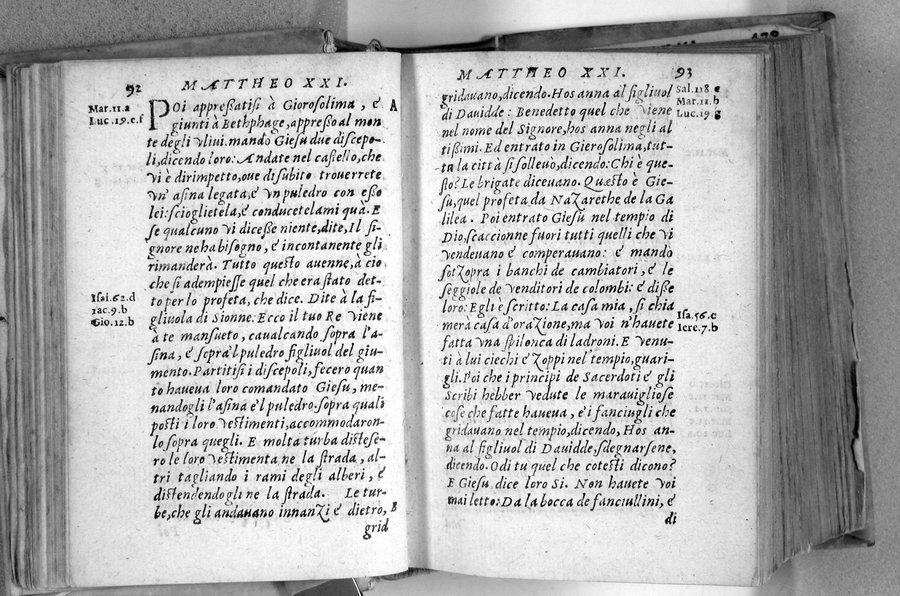 92 MATTHEO XXI.
Mar.11.a
Luc.19.e.f
POi appreßatisi à Giorosolima, é A
giunti à Bethphage, appreßo al mon
te degli vliui. mando Giesu due discepo-
li, dicendo loro: Andate nel castello, che
vi è dirimpetto, oue di subito trouerrete
vn'asina legata, é vn puledro con eßo
lei: scioglietela, é conducetelami quà. E
se qualcuno vi diceße niente, dite, Il si-
gnore ne ha bisogno, é incontanente gli
rimanderà. Tutto questo auenne, à cio
che si adempiesse quel che era stato det-
to per lo profeta, che dice. Dite à la fi-
gliuola di Sionne. Ecco il tuo Re viene
à te mansueto, caualcando sopra l'a-
sina, é sopra'l puledro figliuol del giu-
mento. Partitisi i discepoli, fecero quan
to haueua loro comandato Giesu, me-
nandogli l'asina e'l puledro. sopra quali
posti i loro vestimenti, accommodaron-
lo sopra quegli. E molta turba distese-
ro le loro vestimenta ne la strada, al-
tri tagliando i rami degli alberi, é
distendendogli ne la strada. Le tur-
be, che gli andauano innanzi é dietro, B
grid
Isai.62.d
zac.9.b
Gio.12.b
MATTHEO XXI. 93
gridauano, dicendo. Hos anna al figliuol
di Dauidde: Benedetto quel che viene
nel nome del Signore, hos anna negli al
tißimi. Ed entrato in Gierosolima, tut-
ta la città si solleuò, dicendo: Chi è que-
sto? Le brigate diceuano. Questo è Gie-
su, quel profeta da Nazarethe de la Ga
lilea. Poi entrato Giesu nel tempio di
Dio, scaccionne fuori tutti quelli che vi
vendeuano é comperauano: é mando
sotzopra i banchi de cambiatori, é le
seggiole de venditori de colombi: é diße
loro: Egli è scritto: La casa mia, si chia
merà casa d'orazione, ma voi n'hauete
fatta vna spilonca di ladroni. E venu-
ti à lui ciechi é zoppi nel tempio, guari-
gli. Poi che i principi de Sacerdoti é gli
Scribi hebber vedute le marauigliose
cose che fatte haueua, é i fanciugli che
gridauano nel tempio, dicendo, Hos an-
na al figliuol di Dauidde, sdegnarsene,
dicendo. Odi tu quel che cotesti dicono?
E Giesu dice loro Si. Non hauete voi
mai letto: Da la bocca de fanciullini, é
di
Sal.118.e
Mar.11.b
Luc.19.g
Isa.56.c
Iere.7.b